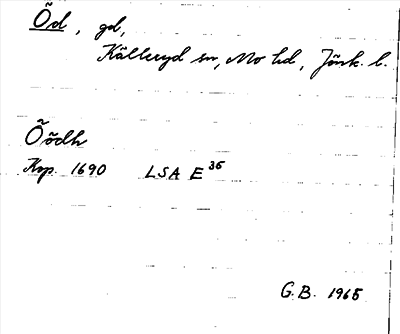 Õd, gd,
Källeryd sn, Mo hd, Jönk. l.
Õõdh
Krp. 1690 LSA E 36
G.B. 1965